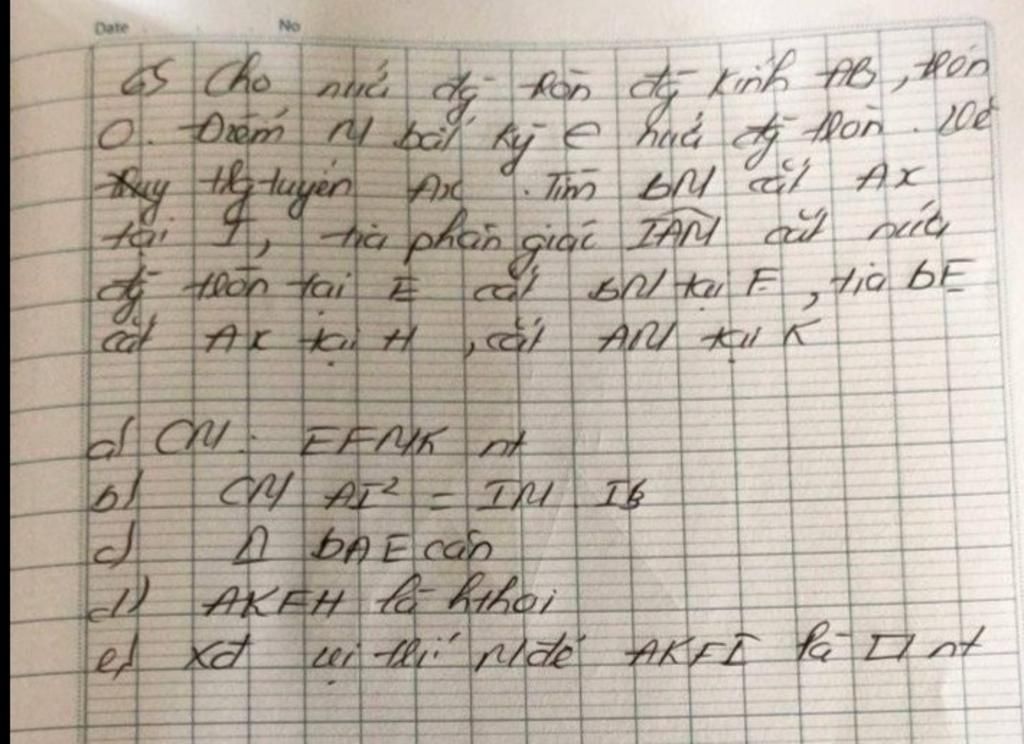 Date No
65 Cho nửa đg tròn đg kính AB, tròn
O. Điểm M bất kỳ ∈ nửa đg tròn.
tiếp tuyến Ax. Tia BM cắt Ax
tại I, tia phân giác IAM cắt nửa
đg tròn tại E cắt BM tại F, tia BE
cắt Ax tại H, cắt AM tại K
a) CM: EFMK nt
b) CM AI² = IM IB
c) Δ BAF cân
d) AKFH là hthoi
e) xđ vị trí M để AKFI là □ nt